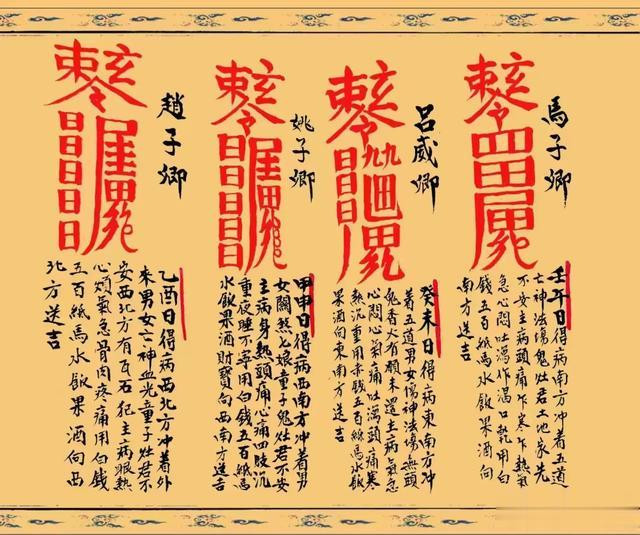 馬子卿
壬午日得病南方冲着五道
亡神法場鬼灶君土地家先
不安主病頭痛乍寒乍熱氣
急心悶吐瀉作渴口乾用白
錢五百紙馬水飯果酒向
南方送吉
呂威卿
癸未日得病東南方冲
着五道男女傷神法場無頭
鬼香火有願未還主病氣急
心悶心氣痛吐瀉頭痛寒
熱沉重用赤錢五百紙馬水飯
果酒向東南方送吉
姚子卿
甲申日得病西南方冲着男
女關煞七娘童子鬼灶君不安
主病身熱頭痛心痛四肢沉
重夜睡不寧用白錢五百紙馬
水飯果酒財寶向西南方送吉
趙子卿
乙酉日得病西北方冲着外
來男女亡神血光童子灶君不
安西北方有瓦石犯主病眼熱
心煩氣急骨肉疼痛用白錢
五百紙馬水飯果酒向西
北方送吉